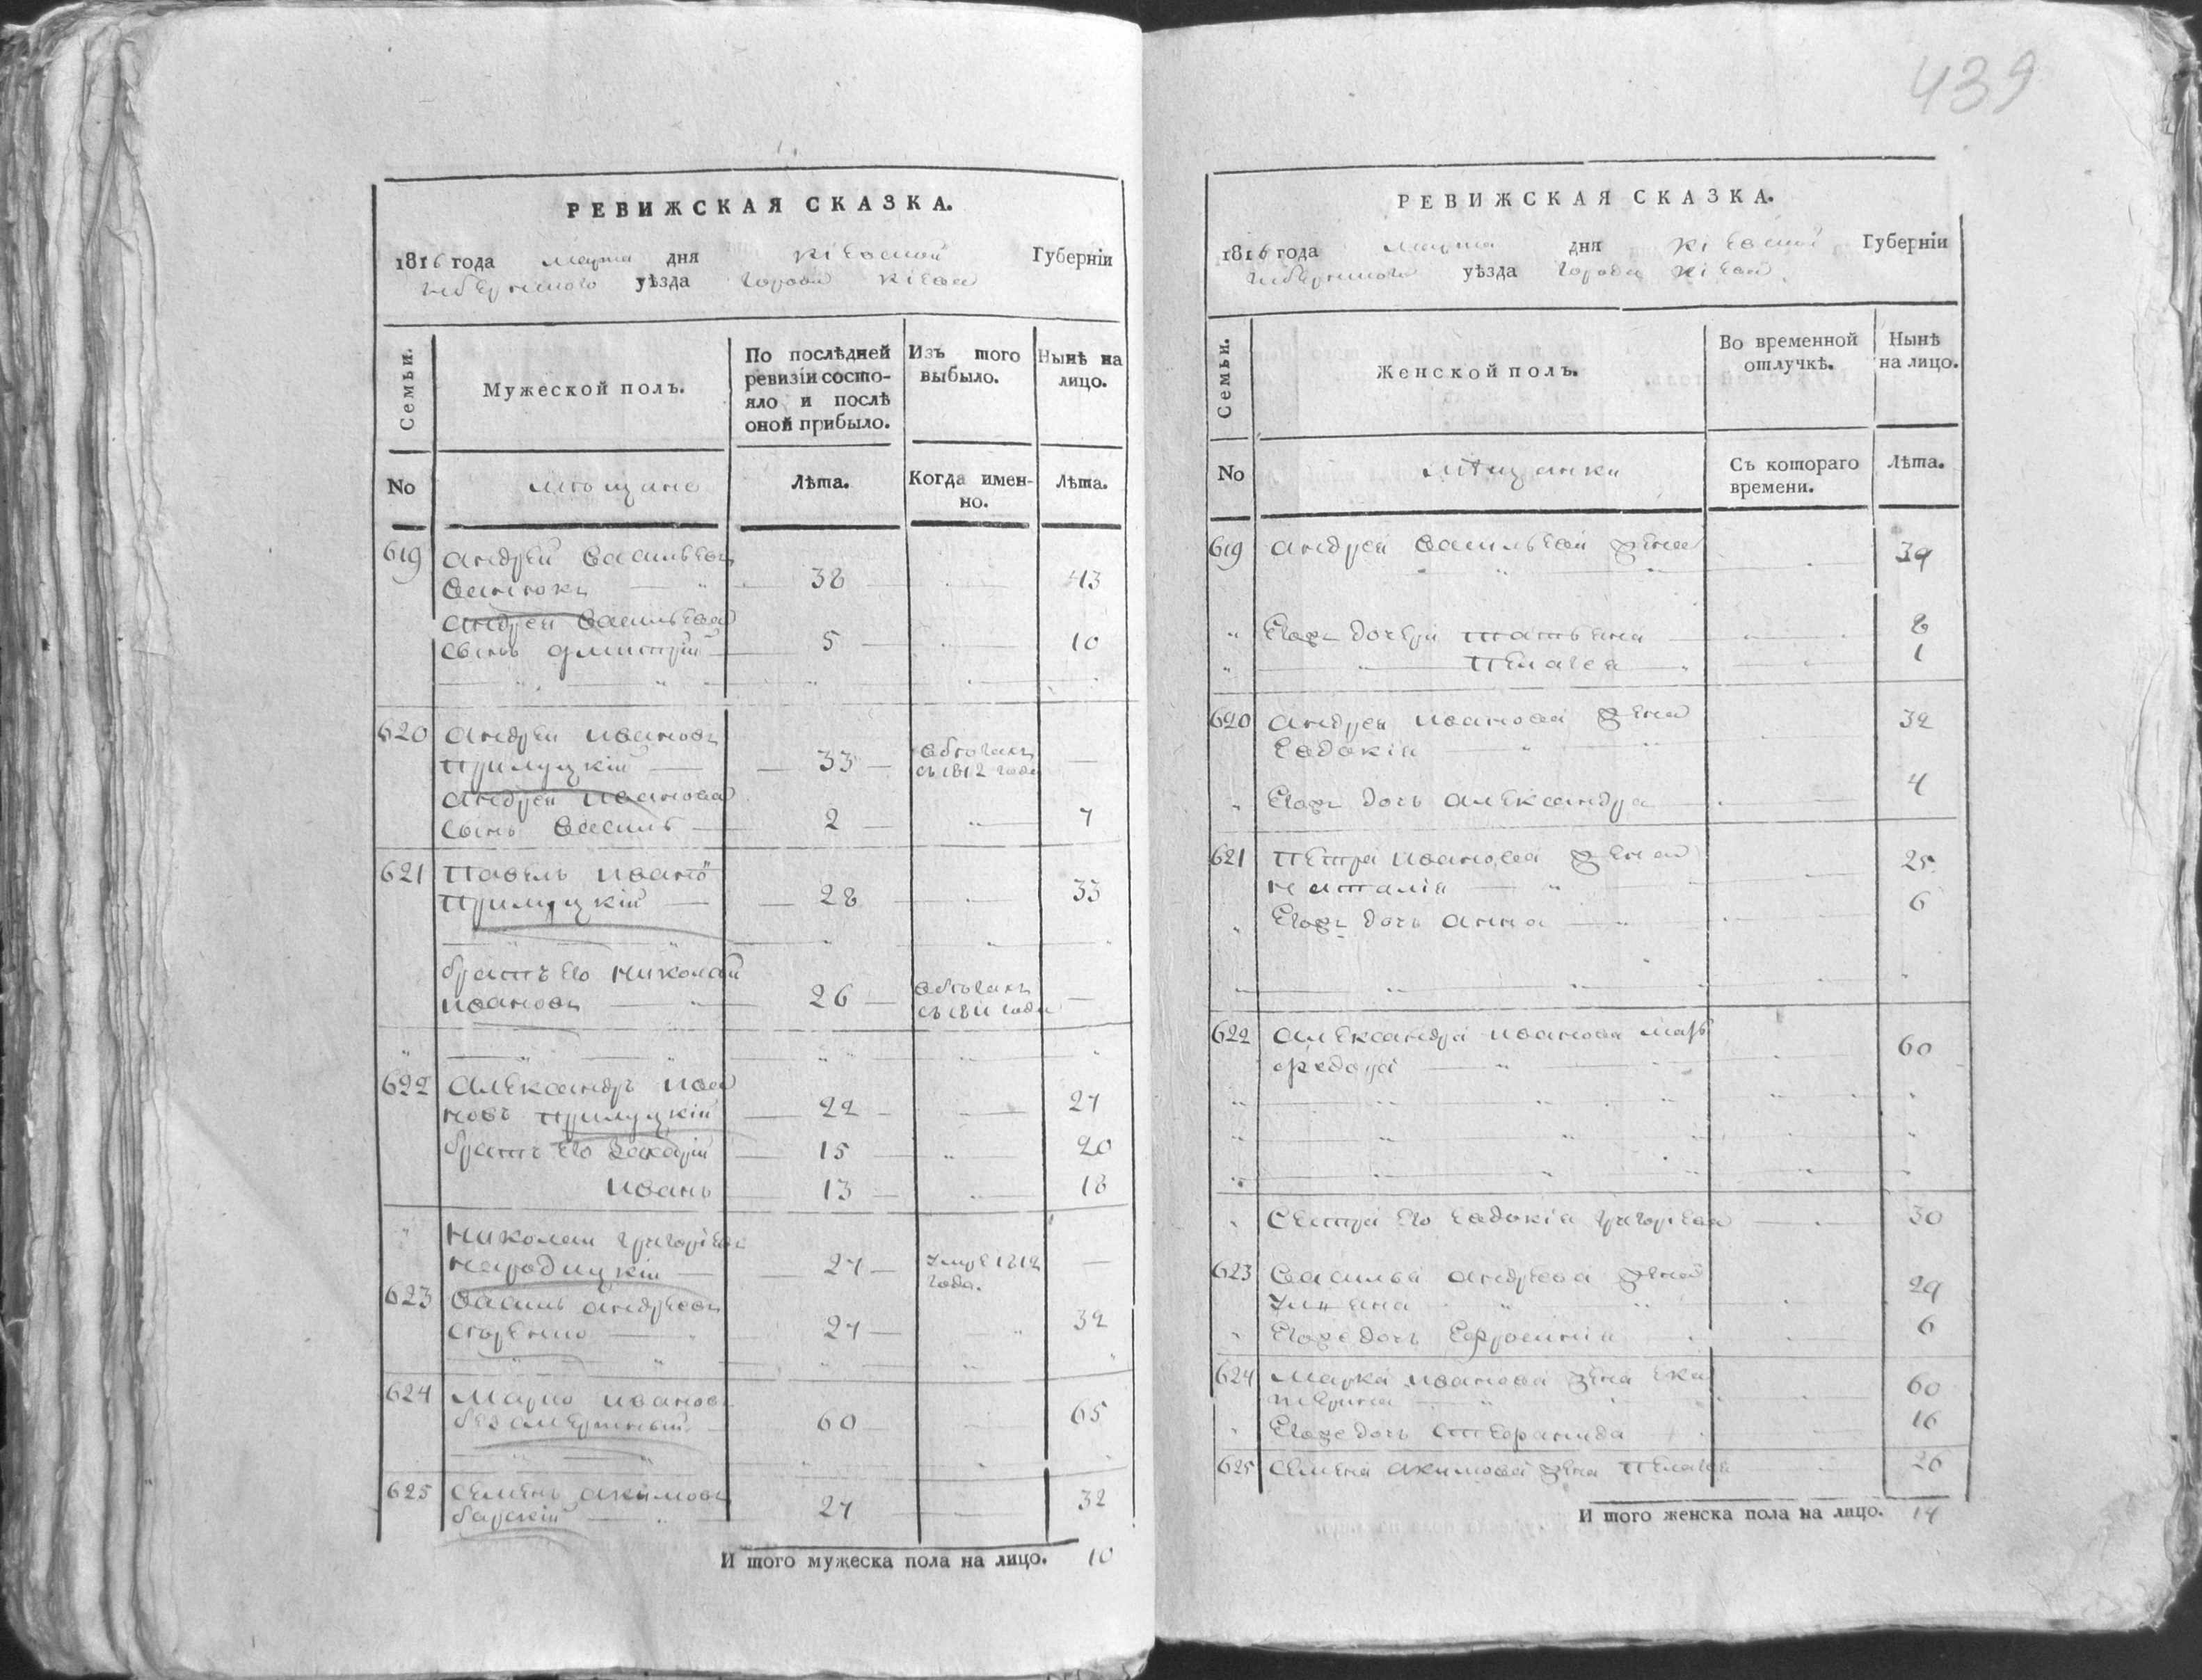 439
РЕВИЖСКАЯ СКАЗКА.
1816 года марта дня Кіевской Губерніи
уѣзда города Кіева
Семьи.
Мужеской полъ.
По послѣдней ревизіи состо-
яло и послѣ
оной прибыло.
Изъ того
выбыло.
Нынѣ на
лицо.
No
мѣщане
Лѣта.
Когда имен-
но.
Лѣта.
619 Андрей Васильевъ
38 43
Андрея Васильева
сынъ Дмитрій 5 10
620 Андрей Ивановъ
Прилуцкій 33 въ бѣгахъ съ 1812 года
Андрея Иванова
сынъ Василь 2 7
621 Павелъ Ивано
Прилуцкій 28 33
братъ его Николай
Ивановъ 26 въ бѣгахъ съ 1811 года
622 Александръ Ива
новъ Прилуцкій 22 27
братъ его Захарій 15 20
Иванъ 13 18
Николай Григорьевъ
Народицкій 27 умре 1812 года.
623 Василь Андреевъ
27 32
624 Марко Ивановъ
безсмертный 60 65
625 Семенъ Акимовъ
барскій 27 32
И того мужеска пола на лицо. 10
РЕВИЖСКАЯ СКАЗКА.
1816 года марта дня Кіевской Губерніи
уѣзда города Кіева
Семьи.
Женской полъ.
Во временной
отлучкѣ.
Нынѣ
на лицо.
No
мѣщанки
Съ котораго
времени.
Лѣта.
619 Андрея Васильева жена 39
Егожъ дочери Татьяна 8
Пелагея 1
620 Андрея Иванова жена
Евдокія 32
Егожъ дочь Александра 4
621 Петра Иванова жена
Наталія 25
Егожъ дочь Анна 6
622 Александра Иванова мать
60
Сестра его Евдокія Григорьева 30
623 Василья Андреева жена
Ульяна 29
Егоже дочь Ефросинія 6
624 Марка Иванова жена Ека
терина 60
Егоже дочь Стефанида 16
625 Семена Акимова жена Пелагея 26
И того женска пола на лицо. 14